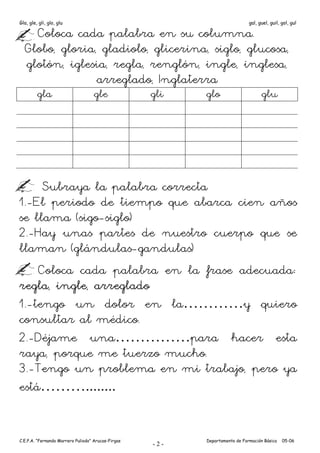 Gla, gle, gli, glo, glu gal, guel, guil, gol, gul
Coloca cada palabra en su columna.
Globo, gloria, gladiolo, glicerina, siglo, glucosa,
glotón, iglesia, regla, renglón, ingle, inglesa,
arreglado, Inglaterra
gla gle gli glo glu
Subraya la palabra correcta
1.-El periodo de tiempo que abarca cien años
se llama (sigo-siglo)
2.-Hay unas partes de nuestro cuerpo que se
llaman (glándulas-gandulas)
Coloca cada palabra en la frase adecuada:
regla, ingle, arreglado
1.-tengo un dolor en la…………y quiero
consultar al médico.
2.-Déjame una……………para hacer esta
raya, porque me tuerzo mucho.
3.-Tengo un problema en mi trabajo, pero ya
está……….......
C.E.P.A. "Fernanda Marrero Pulido" Arucas-Firgas - 2 - Departamento de Formación Básica 05-06